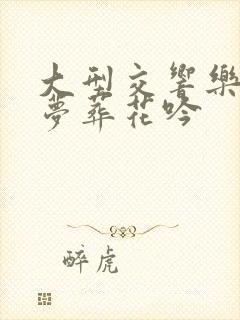 大型交響樂
夢葬花吟
醉虎